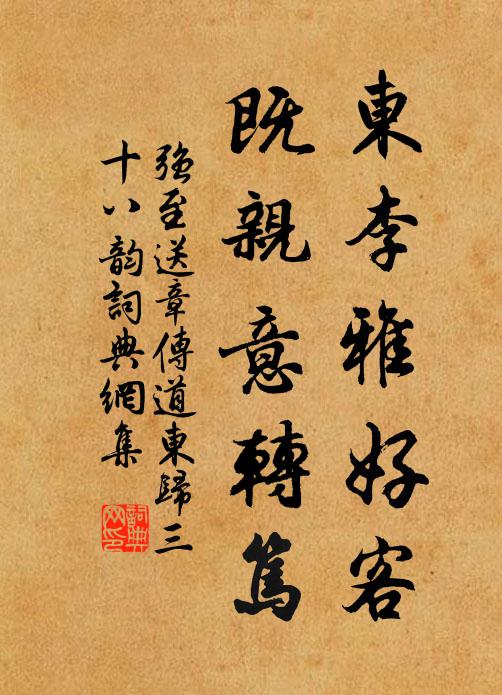 東李雅好客
既親意轉篤
強至送章傳道東歸三
十八韵詞典網集
詞典網印